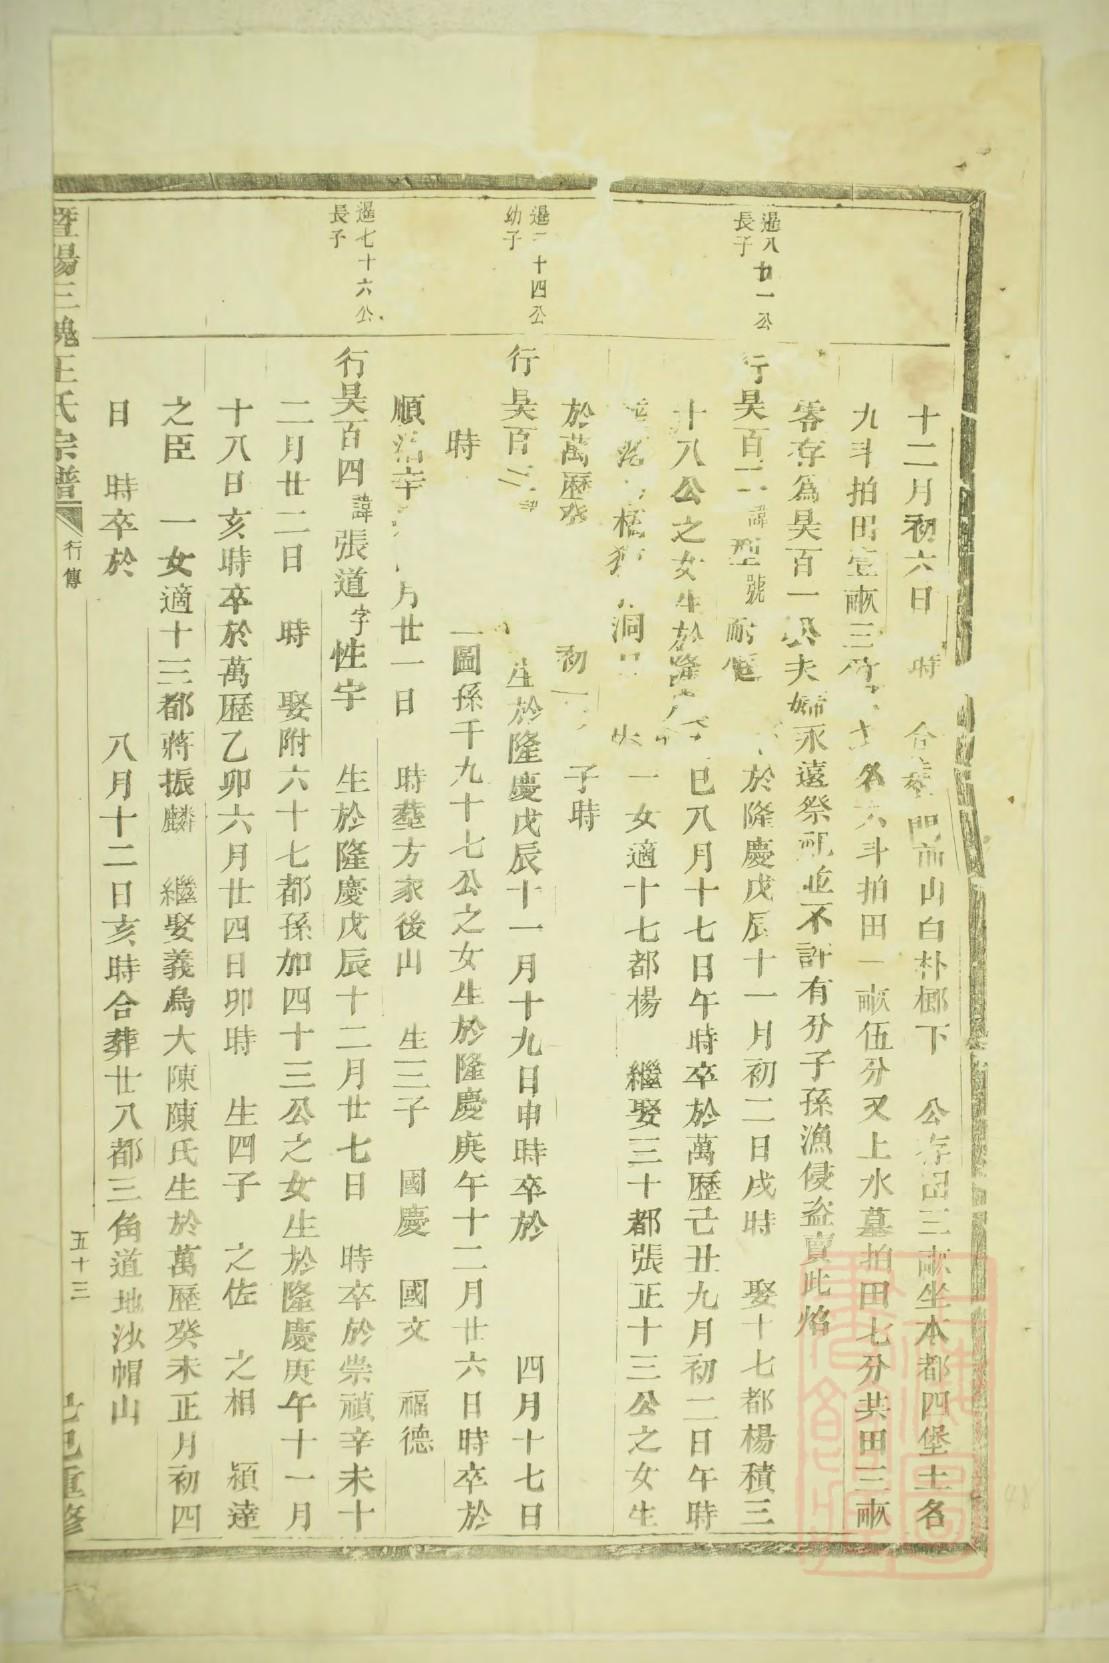 十二月初六日 時 合葬門前山白朴榔下 公存田三畝坐本都四堡土名
九斗拍田壹畝三分 土名六斗拍田一畝伍分又上水墓拍田七分共田三畝
零存爲昊百一公夫婦永遠祭祀並不許有分子孫漁侵盜賣此焰
遏八十一公
長子
行昊百二諱型號耐恒 於隆慶戊辰十一月初二日戌時 娶十七都楊積三
十八公之女生於隆慶 巳八月十七日午時卒於萬歷己丑九月初二日午時
洞 一女適十七都楊 繼娶三十都張正十三公之女生
於萬歷癸 初 子時
遏二十四公
幼子
行昊百 生於隆慶戊辰十一月十九日申時卒於 四月十七日
時 一圖孫千九十七公之女生於隆慶庚午十二月廿六日時卒於
順治辛 月廿一日 時葬方家後山 生三子 國慶 國文 福德
遏七十六公
長子
行昊百四諱張道字性宇 生於隆慶戊辰十二月廿七日 時卒於崇禎辛未十
二月廿二日 時 娶附六十七都孫加四十三公之女生於隆慶庚午十一月
十八日亥時卒於萬歷乙卯六月廿四日卯時 生四子 之佐 之相 穎達
之臣 一女適十三都蔣振麟 繼娶義烏大陳陳氏生於萬歷癸未正月初四
日 時卒於 八月十二日亥時合葬廿八都三角道地沙帽山
暨陽三槐王氏宗譜 行傳 五十三 己巳重修